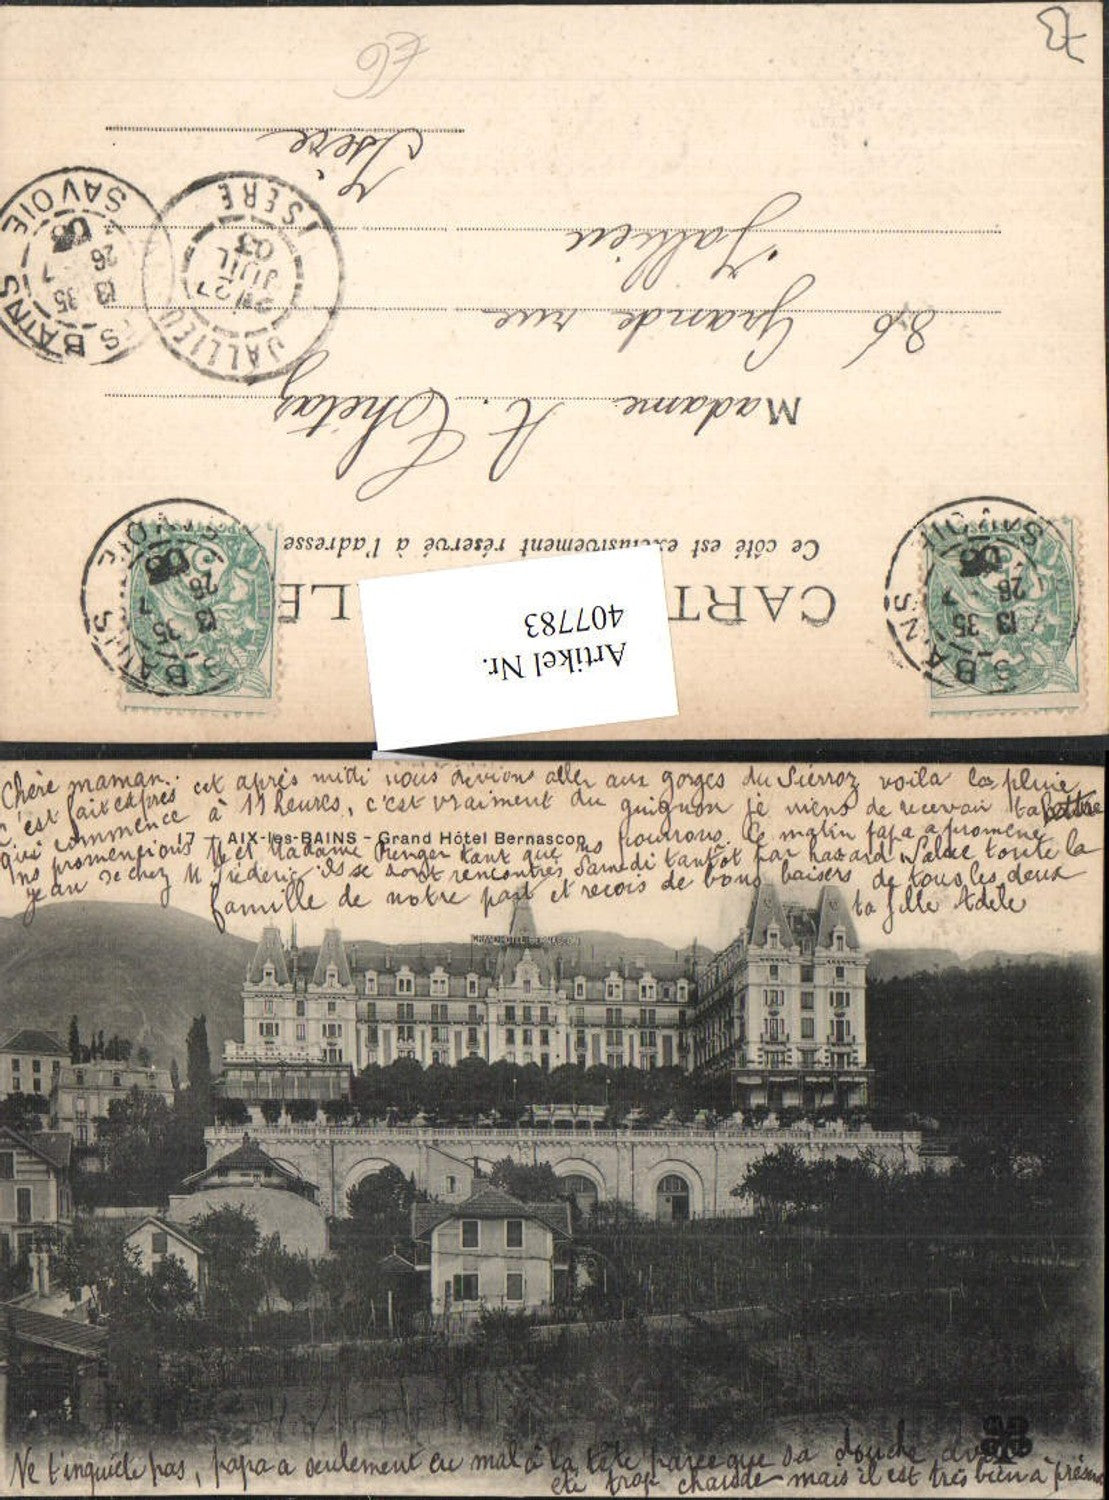 73
E6
CARTE POSTALE
Ce côté est exclusivement réservé à l'adresse
Artikel Nr.
407783
Madame A. Thétaz
86 Grande rue
Jallieu
Isère
JALLIEU
27
JUIL
03
ISÈRE
S BAINS
13 35
26 7
03
SAVOIE
S BAINS
13 35
26 7
03
SAVOIE
S BAINS
13 35
26 7
03
SAVOIE
Chère maman. cet après midi nous devions aller aux gorges du Sierroz voilà la pluie
c'est fait exprès
qui commence à 11 heures, c'est vraiment du guignon je viens de recevoir ta lettre
17 - AIX-les-BAINS - Grand Hôtel Bernascon
ns promenions M et Madame Renger tant que ns pourrons. Ce matin papa a promené
jean de chez M Fréderic, ils se sont rencontrés Samedi tantôt par hazard. Salue toute la
famille de notre part et reçois de bons baisers de tous les deux
ta fille Adèle
GRAND HOTEL BERNASCON
Ne t'inquiète pas, papa a seulement eu mal à la tête parce que sa douche avait
été trop chaude mais il est très bien à présent